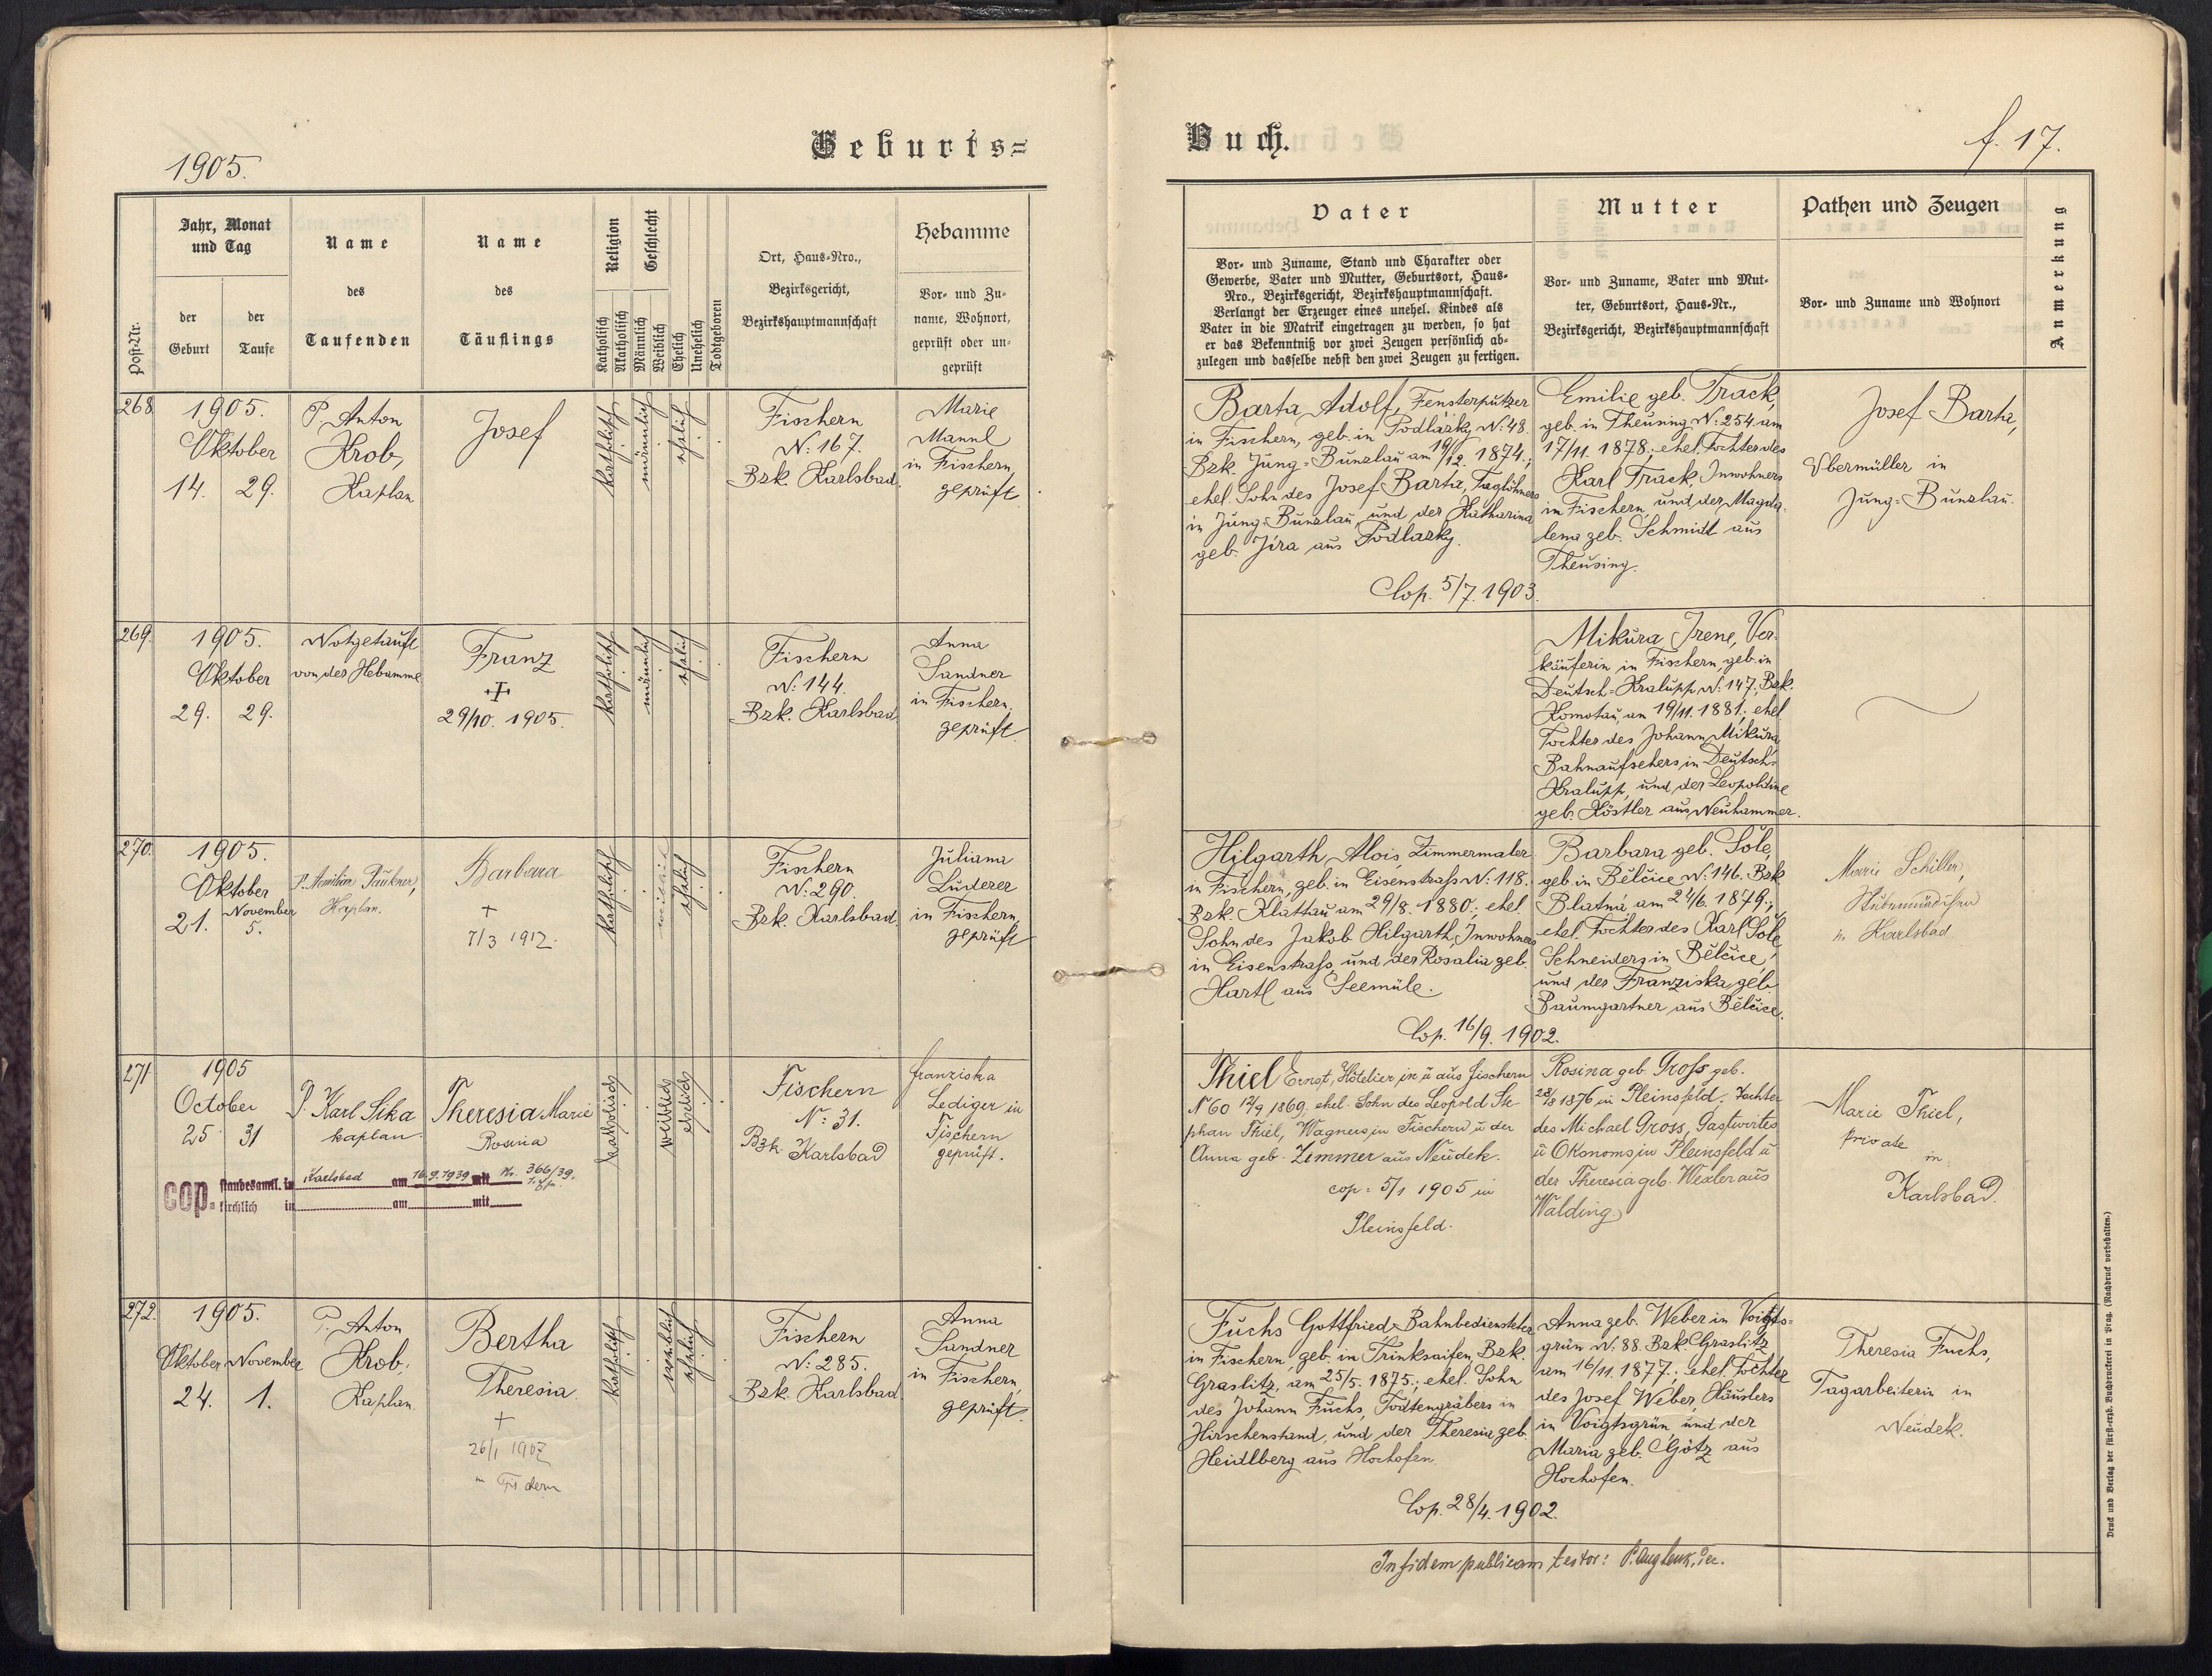 1905.
Geburts=
Post-Nr.
Jahr, Monat
und Tag
der
Geburt
der
Taufe
Name
des
Taufenden
Name
des
Täuflings
Religion
Katholisch
Akatholisch
Geschlecht
Männlich
Weiblich
Ehelich
Unehelich
Todtgeboren
Ort, Haus=Nro.,
Bezirksgericht,
Bezirkshauptmannschaft
Hebamme
Vor= und Zu=
name, Wohnort,
geprüft oder un=
geprüft
268
1905.
Oktober
14. 29.
P. Anton
Krob,
Kaplan
Josef
katholisch
männlich
ehelich
Fischern
N: 167.
Bzk. Karlsbad.
Marie
Mannl
in Fischern,
geprüft
269.
1905.
Oktober
29. 29.
Notgetauft
von der Hebamme
Franz
29/10. 1905.
katholisch
männlich
ehelich
Fischern
N: 144.
Bzk. Karlsbad
Anna
Sandner
in Fischern,
geprüft.
270.
1905.
Oktober
21. November
5.
P. Paukner,
Kaplan.
Barbara
+
7/3 1912.
katholisch
weiblich
ehelich
Fischern
N: 290.
Bzk. Karlsbad.
Juliana
Luderer
in Fischern,
geprüft
271
1905
October
25 31
P. Karl Sika
kaplan
Theresia Marie
Rosina
katholisch
weiblich
ehelich
Fischern
N: 31.
Bzk. Karlsbad
Franziska
Lediger in
Fischern
geprüft.
cop.= standesamtl. in Karlsbad am 16.9.1939 mit Nr. 366/39.
kirchlich in am mit
272.
1905.
Oktober November
24. 1.
P. Anton
Krob,
Kaplan.
Bertha
Theresia.
+
26/1 1907
katholisch
weiblich
ehelich
Fischern
N: 285.
Bzk. Karlsbad
Anna
Sandner
in Fischern,
geprüft.
Buch.
f. 17.
Vater
Vor= und Zuname, Stand und Charakter oder
Gewerbe, Vater und Mutter, Geburtsort, Haus=
Nro., Bezirksgericht, Bezirkshauptmannschaft.
Verlangt der Erzeuger eines unehel. Kindes als
Vater in die Matrik eingetragen zu werden, so hat
er das Bekenntniß vor zwei Zeugen persönlich ab=
zulegen und dasselbe nebst den zwei Zeugen zu fertigen.
Mutter
Vor= und Zuname, Vater und Mut=
ter, Geburtsort, Haus=Nr.,
Bezirksgericht, Bezirkshauptmannschaft
Pathen und Zeugen
Vor= und Zuname und Wohnort
Anmerkung
Barta Adolf, Fensterputzer
in Fischern, geb. in Podlázky N: 48.
Bzk. Jung=Bunzlau am 19/12. 1874.;
ehel. Sohn des Josef Barta, Taglöhners
in Jung=Bunzlau, und der Katharina
geb. Jíra aus Podlazky.
Cop. 5/7. 1903.
Emilie geb. Track,
geb. in Theusing N: 254. am
17/11. 1878.; ehel. Tochter des
Karl Track, Inwohners
in Fischern, und der Magda=
lena geb. Schmidt aus
Theusing.
Josef Barta,
Obermüller in
Jung=Bunzlau.
Mikura Irene, Ver=
käuferin in Fischern, geb. in
Deutsch=Kralupp N: 147, Bzk.
Komotau, am 19/11. 1881.; ehel.
Tochter des Johann Mikura
Bahnaufsehers in Deutsch=
Kralupp, und der Leopoldine
geb. Köstler aus Neuhammer.
Hilgarth Alois Zimmermaler
in Fischern, geb. in Eisenstraß N: 118.
Bzk. Klattau am 29/8. 1880.; ehel.
Sohn des Jakob Hilgarth, Inwohners
in Eisenstraß, und der Rosalia geb.
Hartl aus Seemüle.
Cop. 16/9. 1902.
Barbara geb. Šole,
geb. in Bělčice N: 146. Bzk.
Blatna am 24/6. 1879.;
ehel. Tochter des Karl Šole,
Schneiders in Bělčice,
und der Franziska geb.
Baumgartner aus Bělčice.
Marie Schiller,
Stubenmädchen
in Karlsbad
Thiel Ernst, Hôtelier in u aus Fischern
N 60 12/9 1869. ehel. Sohn des Leopold Ste
phan Thiel, Wagners in Fischern u der
Anna geb. Zimmer aus Neudek.
cop: 5/1 1905 in
Pleinsfeld.
Rosina geb. Gross geb.
28/8 1876 in Pleinsfeld. Tochter
des Michael Gross, Gastwirtes
u Ökonoms in Pleinsfeld u
der Theresia geb. Wexler aus
Walding
Marie Thiel,
Private
in
Karlsbad.
Fuchs Gottfried Bahnbediensteter
in Fischern, geb. in Trinksaifen, Bzk.
Graslitz, am 25/5. 1875.; ehel. Sohn
des Johann Fuchs, Todtengräbers in
Hirschenstand, und der Theresia geb.
Heidlberg aus Hochofen.
Cop. 28/4. 1902.
Anna geb. Weber in Voigts=
grün N: 88. Bzk. Graslitz
am 16/11. 1877.; ehel. Tochter
des Josef Weber, Häuslers
in Voigtsgrün, und der
Maria geb. Götz aus
Hochofen.
Theresia Fuchs,
Tagarbeiterin in
Neudek.
In fidem publicam testor:
Druck und Verlag der fürst=erzb. Buchdruckerei in Prag. (Nachdruck vorbehalten.)